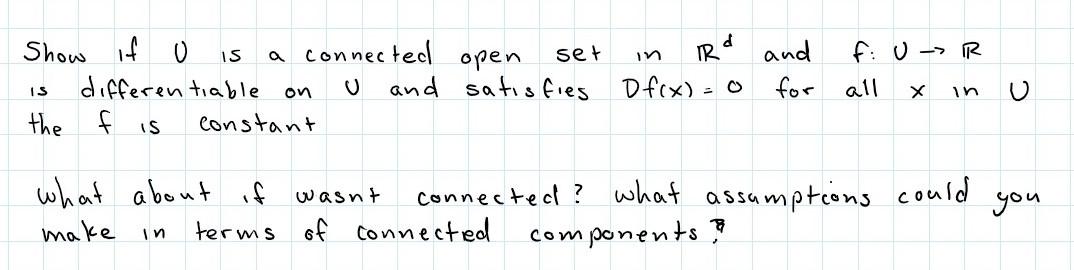 Show if U is a connected open set in ℝᵈ and f: U → ℝ
is differentiable on U and satisfies Df(x) = 0 for all x in U
the f is constant
what about if wasnt connected? what assumptions could you
make in terms of connected components?